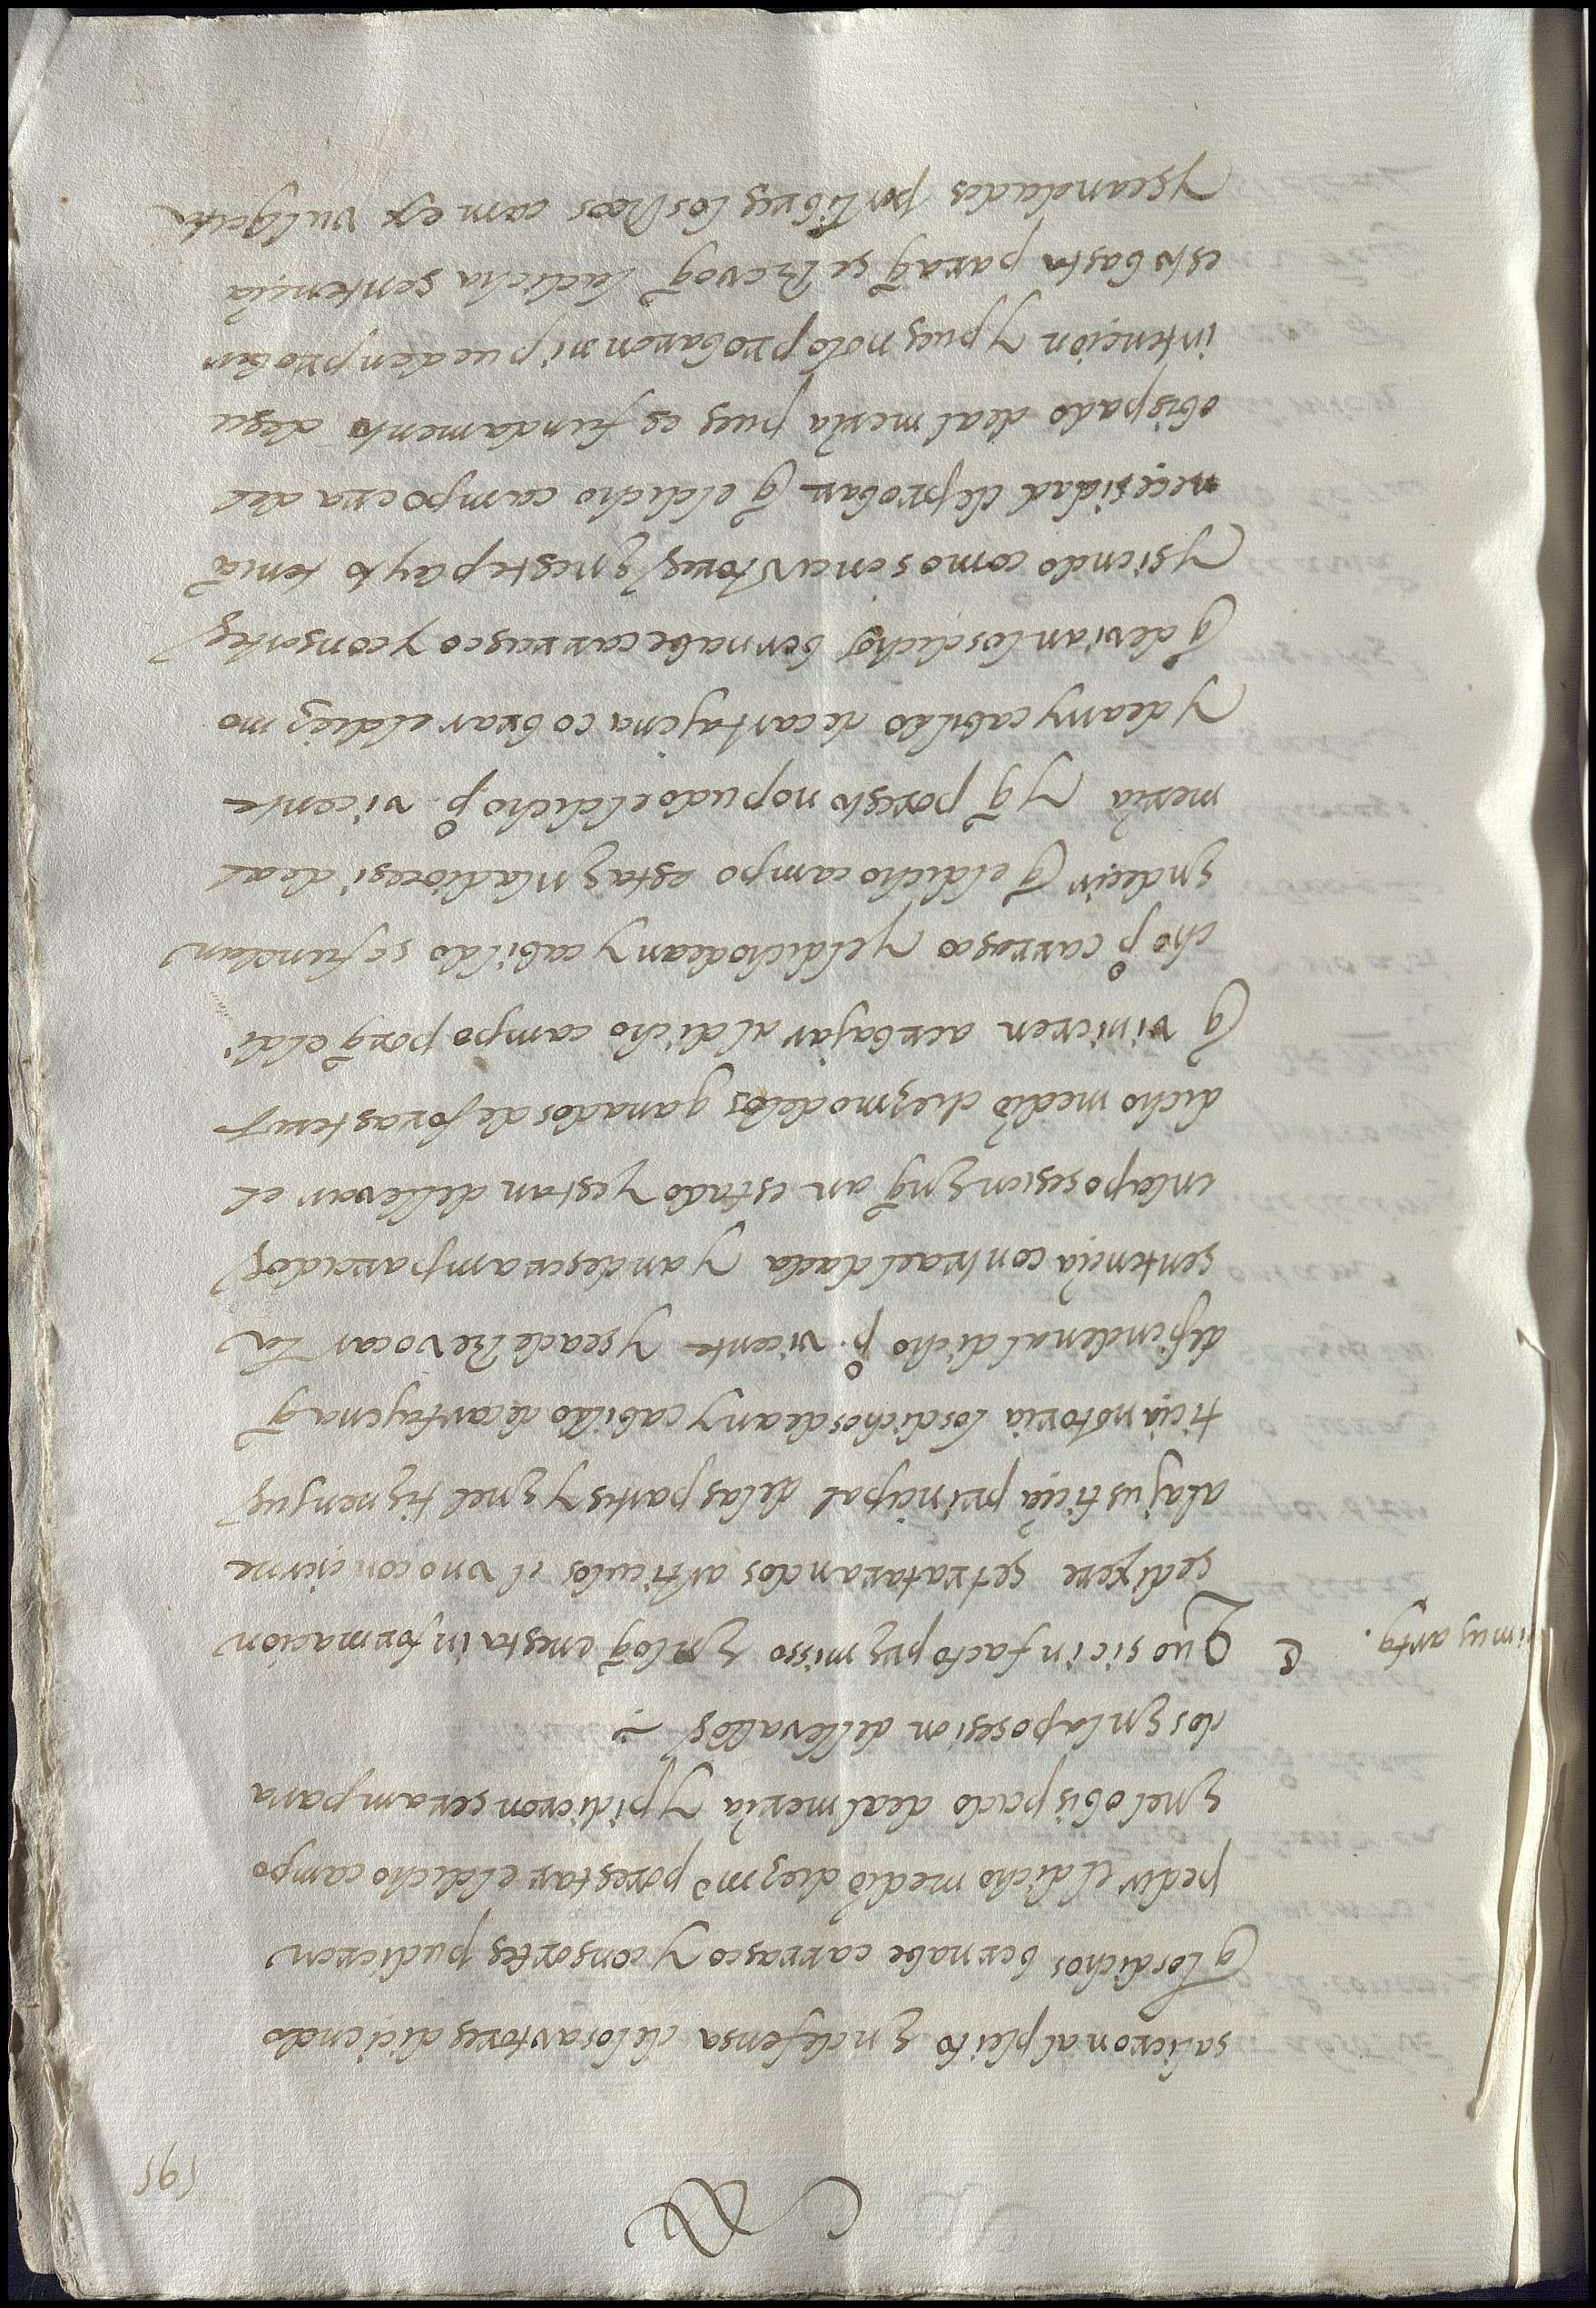 595
salieron al pleito en defensa de los autores diciendo
q̄ los dichos bernabe carrasco y consortes pudieron
pedir el dicho medio diezmo por estar el dicho campo
en el obispado de almeria y pidieron ser ampara
dos en la posesion de llevallos
Quo sic in facto premisso en lo q̄ en esta informacion
se dixere se trataran dos articulos el uno concierne
a la justicia principal de las partes y en el tienen jus
ticia notoria los dichos dean y cabildo de cartajena q̄
defienden al dicho pº vicente y se a de Revocar la
sentencia contra el dada y an de ser amparados
en la posesion en q̄ an estado y estan de llevar el
dicho medio diezmo de los ganados de forasteros
q̄ vinieren a erbajar al dicho campo porq̄ el di
cho pº carrasco y el dicho dean y cabildo se fundan
en decir q̄ el dicho campo esta en la diocesi de al
meria y q̄ por esto no pudo el dicho pº vicente
y dean y cabildo de cartajena cobrar el diezmo
q̄ devian los dichos bernabe carrasco y consortes
y siendo como son autores en este pleyto tenia
necesidad de probar q̄ el dicho campo era del
obispado de almeria pues es fundamento de su
intencion y pues no lo probaron ni pueden probar
esto basta para q̄ se Revoq̄ la dicha sentencia
y sean dados por libres los Reos cum ex vulgata